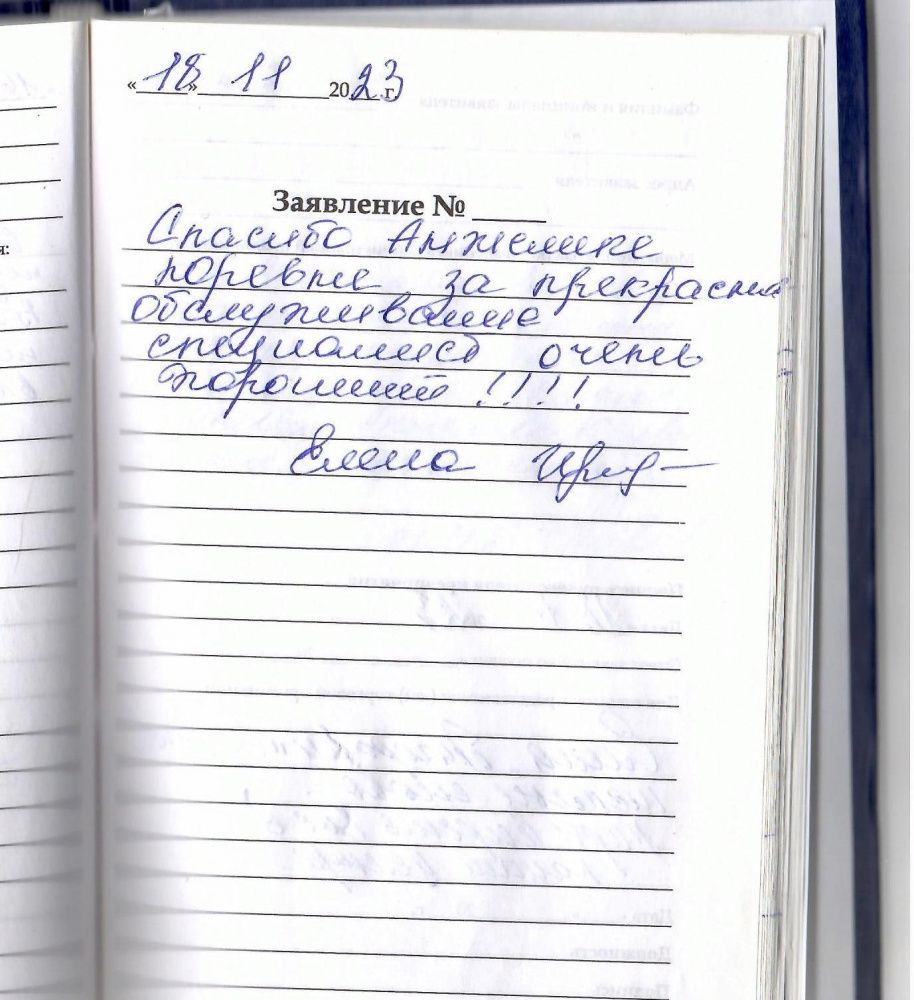 « 18 » 11 2023 г.
Заявление № ____
Спасибо Анжелике
за прекрасное
обслуживание
специалист очень
хороший !!!!
Елена
я: